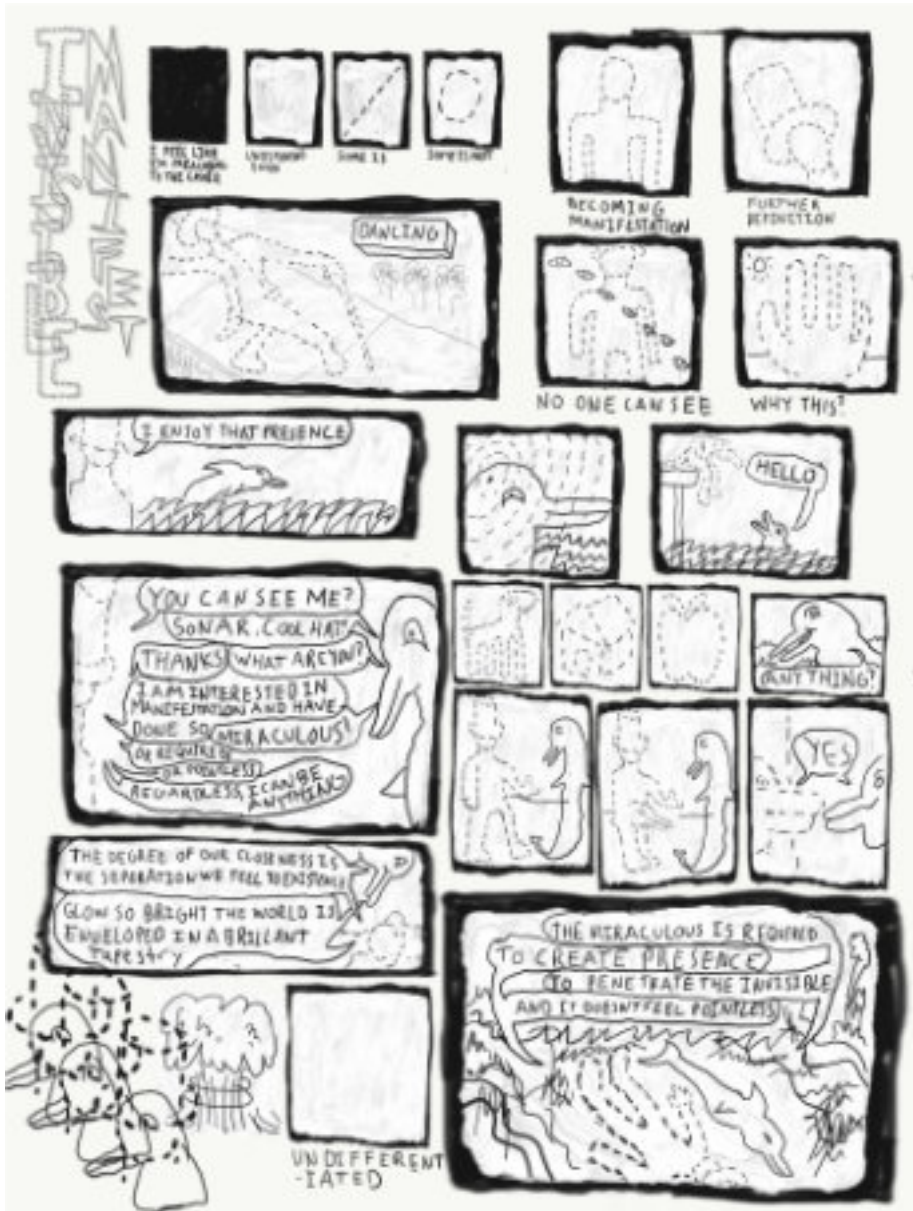 INVISIBLE
I FEEL LIKE
TO THE
BECOMING
MANIFESTATION
FURTHER
DEFINITION
DANCING
NO ONE CAN SEE
WHY THIS?
I ENJOY THAT PRESENCE
HELLO
YOU CAN SEE ME?
SONAR. COOL HAT!
THANKS
WHAT ARE YOU?
I AM INTERESTED IN
MANIFESTATION AND HAVE
DONE SO
MIRACULOUS!
OR REQUIRED
OR POINTLESS
REGARDLESS, I CAN BE
ANYTHING
ANYTHING?
YES
THE DEGREE OF OUR CLOSENESS IS
THE SEPERATION WE FEEL TO EXISTENCE
GLOW SO BRIGHT THE WORLD IS
ENVELOPED IN A BRILLANT
TAPESTRY
THE MIRACULOUS IS REQUIRED
TO CREATE PRESENCE
TO PENETRATE THE INVISIBLE
AND IT DOESNT FEEL POINTLESS
UNDIFFERENT
-IATED